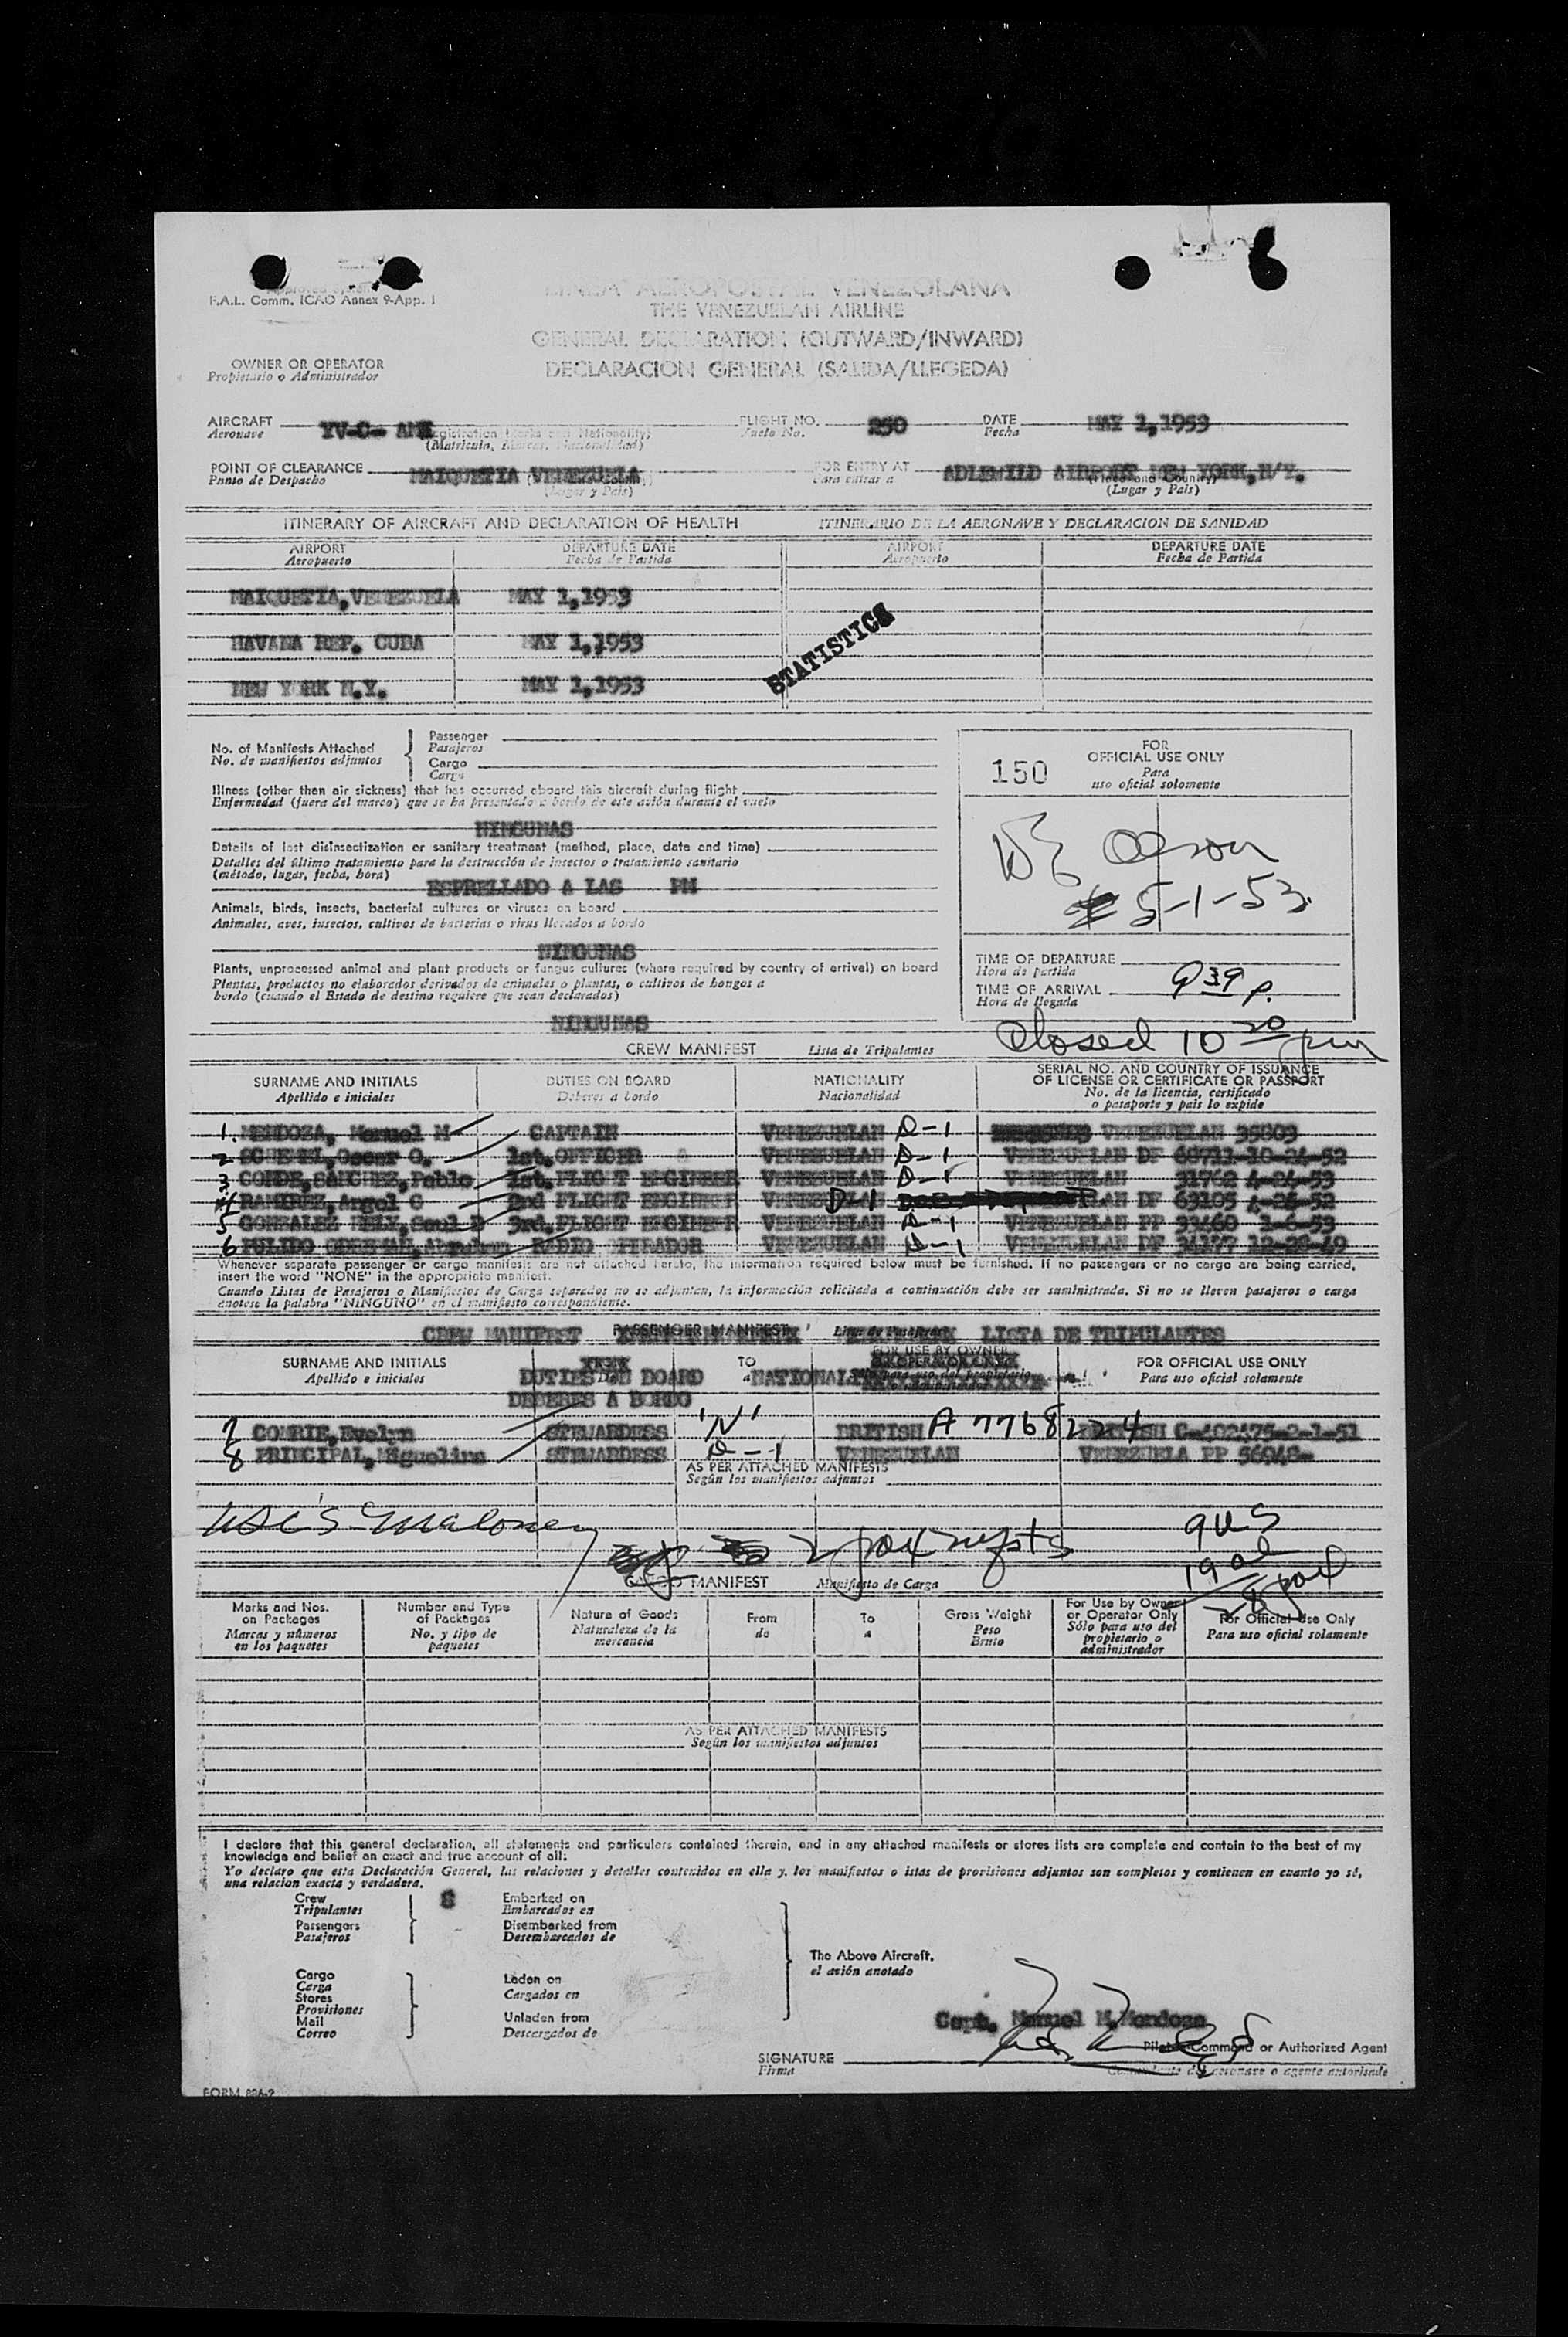 F.A.L. Comm. ICAO Annex 9-App. 1
LINEA AEROPOSTAL VENEZOLANA
THE VENEZUELAN AIRLINE
GENERAL DECLARATION (OUTWARD/INWARD)
DECLARACION GENERAL (SALIDA/LLEGEDA)
OWNER OR OPERATOR
Propietario o Administrador
AIRCRAFT YV-C- FLIGHT NO. 250 DATE MAY 1,1953
Aeronave Vuelo No. Fecha
(Matricula, Nacionalidad)
POINT OF CLEARANCE MAIQUETIA VENEZUELA FOR ENTRY AT ADLEWILD AIRPORT NEW YORK,N/Y.
Punto de Despacho (Lugar y Pais) Para entrar a (Place and Country)
(Lugar y Pais)
ITINERARY OF AIRCRAFT AND DECLARATION OF HEALTH ITINERARIO DE LA AERONAVE Y DECLARACION DE SANIDAD
AIRPORT DEPARTURE DATE AIRPORT DEPARTURE DATE
Aeropuerto Fecha de Partida Aeropuerto Fecha de Partida
MAIQUETIA,VENEZUELA MAY 1,1953
HAVANA REP. CUBA MAY 1,1953
STATISTICS
NEW YORK N.Y. MAY 1,1953
No. of Manifests Attached
No. de manifiestos adjuntos
Passenger
Pasajeros
Cargo
Carga
FOR
OFFICIAL USE ONLY
Para
uso oficial solomente
150
Illness (other than air sickness) that has occurred aboard this aircraft during flight
Enfermedad (fuera del mareo) que se ha presentado a bordo de este avión durante el vuelo
NINGUNAS
Details of last disinsectization or sanitary treatment (method, place, date and time)
Detalles del último tratamiento para la destrucción de insectos o tratamiento sanitario
(método, lugar, fecha, hora)
ESPRELLADO A LAS PM
Olson
5-1-53
Animals, birds, insects, bacterial cultures or viruses on board
Animales, aves, insectos, cultivos de bacterias o virus llevados a bordo
NINGUNAS
Plants, unprocessed animal and plant products or fungus cultures (where required by country of arrival) on board
Plantas, productos no elaborados derivados de animales o plantas, o cultivos de hongos a
bordo (cuando el Estado de destino requiere que sean declarados)
NINGUNAS
TIME OF DEPARTURE
Hora de partida
TIME OF ARRIVAL 9 39 p.
Hora de llegada
Closed 10 20 pm
CREW MANIFEST Lista de Tripulantes
SURNAME AND INITIALS DUTIES ON BOARD NATIONALITY SERIAL NO. AND COUNTRY OF ISSUANCE
OF LICENSE OR CERTIFICATE OR PASSPORT
Apellido e iniciales Deberes a bordo Nacionalidad No. de la licencia, certificado
o pasaporte y pais lo expide
1. MENDOZA, Manuel M CAPTAIN VENEZUELAN D-1 VENEZUELAN 35809
2 Oscar O. 1st.OFFICER VENEZUELAN D-1 VENEZUELAN DF 66711-10-24-52
3 CONDE,SANCHEZ,Pablo 1st.FLIGHT ENGINEER VENEZUELAN D-1 VENEZUELAN 31762 4-24-53
4 RAMIREZ,Angel C 2nd FLIGHT ENGINEER D-1 DF 63105 4-26-52
5 GONZALEZ Saul D 3rd.FLIGHT ENGINEER VENEZUELAN D-1 VENEZUELAN PP 33460 1-6-53
6 PULIDO Abraham RADIO OPERADOR VENEZUELAN D-1 VENEZUELAN DF 34177 12-28-49
Whenever separate passenger or cargo manifests are not attached hereto, the information required below must be furnished. If no passengers or no cargo are being carried,
insert the word "NONE" in the appropriate manifest.
Cuando Listas de Pasajeros o Manifiestos de Carga separados no se adjuntan, la información solicitada a continuación debe ser suministrada. Si no se lleven pasajeros o carga
anotese la palabra "NINGUNO" en el manifiesto correspondiente.
CREW MANIFEST PASSENGER MANIFEST LISTA DE TRIPULANTES
SURNAME AND INITIALS TO FOR USE BY OWNER FOR OFFICIAL USE ONLY
Apellido e iniciales DUTIES ON BOARD a Para uso oficial solamente
DEBERES A BORDO
7 COMRIE,Evelyn STEWARDESS 'N' BRITISH A 7768224 BRITISH C-402475-2-1-51
8 PRINCIPAL,Miguelina STEWARDESS D-1 VENEZUELAN VENEZUELA PP 56948-
AS PER ATTACHED MANIFESTS
Según los manifiestos adjuntos
Maloney
9 US
19 al
28 pax
CARGO MANIFEST Manifiesto de Carga
Marks and Nos.
on Packages
Marcas y números
en los paquetes
Number and Type
of Packages
No. y tipo de
paquetes
Nature of Goods
Naturaleza de la
mercancia
From
de
To
a
Gross Weight
Peso
Bruto
For Use by Owner
or Operator Only
Sólo para uso del
propietario o
administrador
For Official Use Only
Para uso oficial solamente
AS PER ATTACHED MANIFESTS
Según los manifiestos adjuntos
I declare that this general declaration, all statements and particulars contained therein, and in any attached manifests or stores lists are complete and contain to the best of my
knowledge and belief an exact and true account of all:
Yo declaro que esta Declaración General, las relaciones y detalles contenidos en ella y. los manifiestos o istas de provisiones adjuntos son completos y contienen en cuanto yo sé,
una relacion exacta y verdadera.
Crew 8 Embarked on
Tripulantes Embarcados en
Passengers Disembarked from
Pasajeros Desembarcados de
The Above Aircraft.
el avión anotado
Cargo Laden on
Carga Cargados en
Stores
Provisiones
Mail Unladen from
Correo Descargados de
Capt. Manuel M.Mendoza
Command or Authorized Agent
SIGNATURE
Firma
aeronave o agente autorisade
FORM 886-2